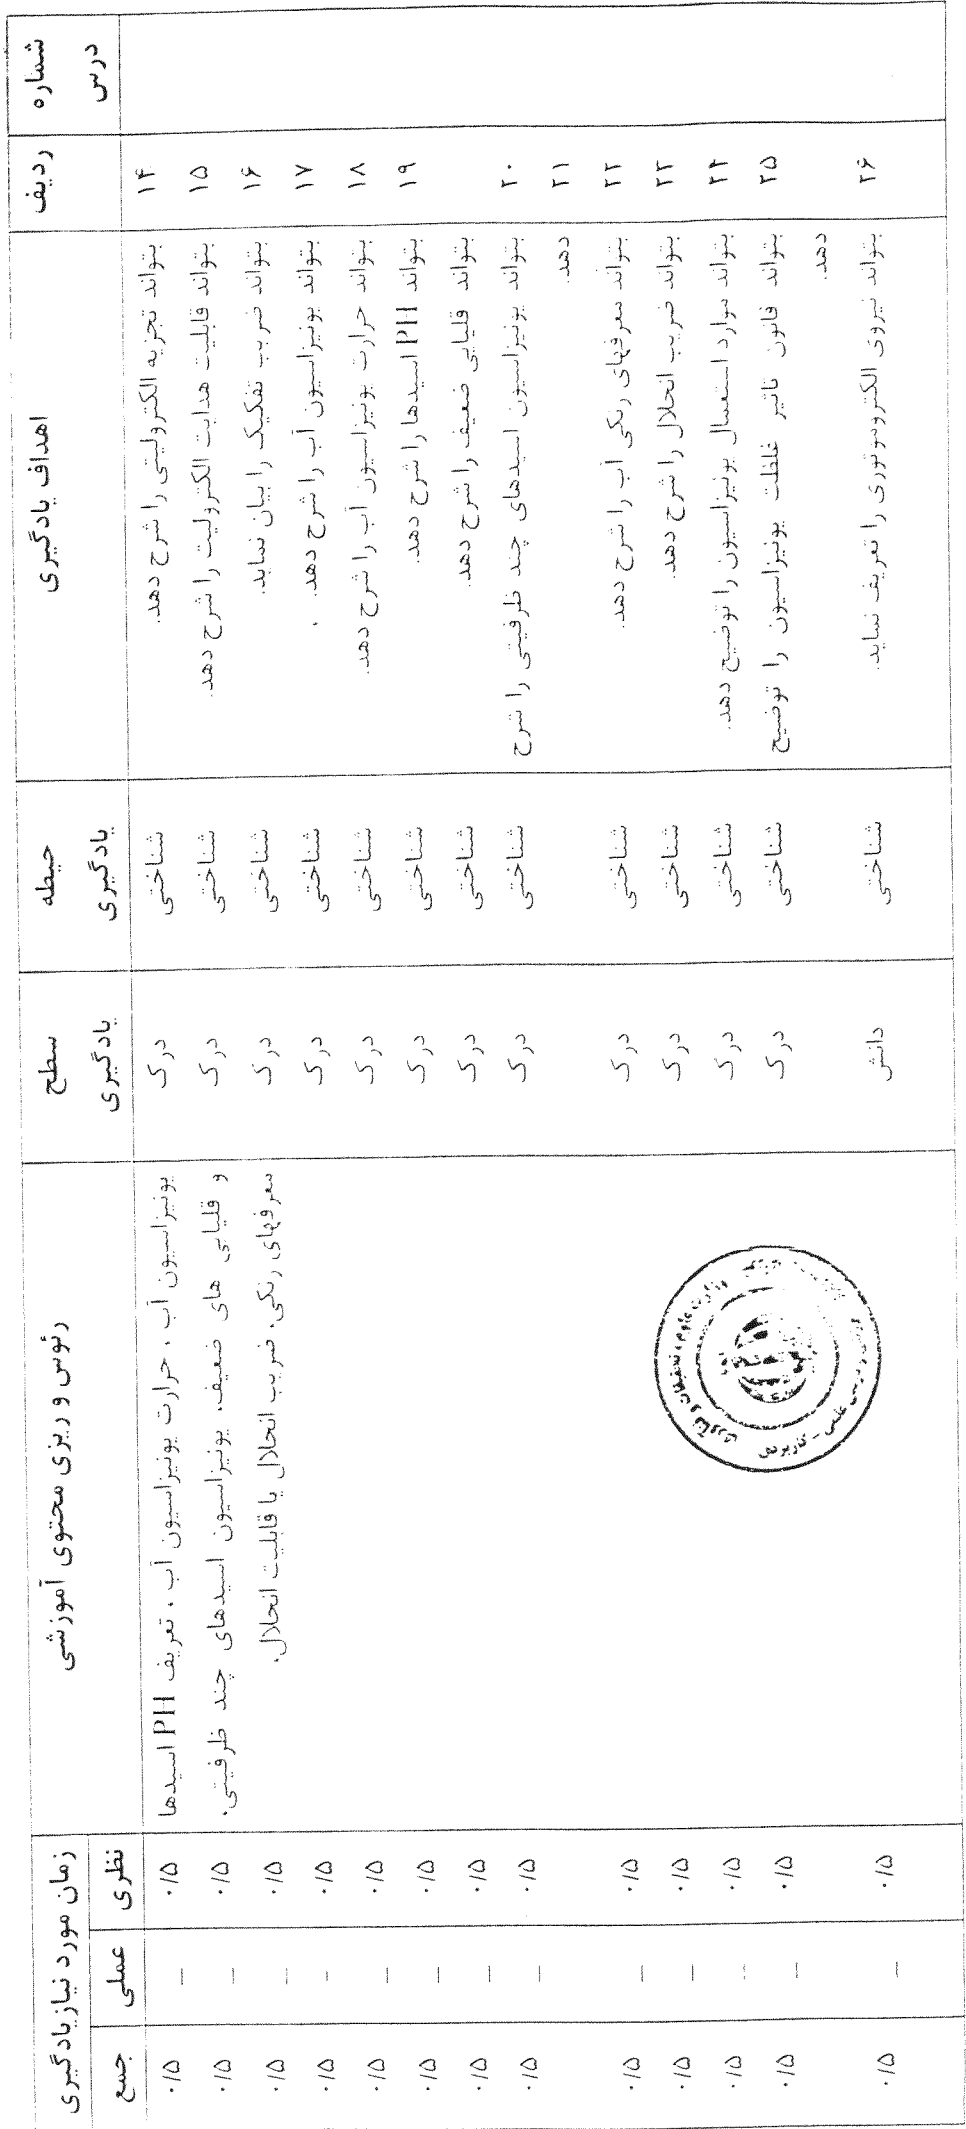 شماره درس | ردیف | اهداف یادگیری | حیطه یادگیری | سطح یادگیری | رئوس و ریزی محتوی آموزشی | زمان مورد نیازیادگیری
نظری | عملی | جمع
۱۴ بتواند تجزیه الکترولیتی را شرح دهد. شناختی درک یونیزاسیون آب ، حرارت یونیزاسیون آب ، تعریف PH اسیدها ۰/۵ – ۰/۵
۱۵ بتواند قابلیت هدایت الکترولیت را شرح دهد. شناختی درک و قلیایی های ضعیف، یونیزاسیون اسیدهای چند ظرفیتی، ۰/۵ – ۰/۵
۱۶ بتواند ضریب تفکیک را بیان نماید. شناختی درک معرفهای رنگی، ضریب انحلال یا قابلیت انحلال. ۰/۵ – ۰/۵
۱۷ بتواند یونیزاسیون آب را شرح دهد. شناختی درک ۰/۵ – ۰/۵
۱۸ بتواند حرارت یونیزاسیون آب را شرح دهد. شناختی درک ۰/۵ – ۰/۵
۱۹ بتواند PH اسیدها را شرح دهد. شناختی درک ۰/۵ – ۰/۵
بتواند قلیایی ضعیف را شرح دهد. شناختی درک ۰/۵ – ۰/۵
۲۰ بتواند یونیزاسیون اسیدهای چند ظرفیتی را شرح شناختی درک ۰/۵ – ۰/۵
۲۱ دهد.
۲۲ بتواند معرفهای رنگی آب را شرح دهد. شناختی درک ۰/۵ – ۰/۵
۲۳ بتواند ضریب انحلال را شرح دهد. شناختی درک ۰/۵ – ۰/۵
۲۴ بتواند موارد استعمال یونیزاسیون را توضیح دهد. شناختی درک ۰/۵ – ۰/۵
۲۵ بتواند قانون تاثیر غلظت یونیزاسیون را توضیح شناختی درک ۰/۵ – ۰/۵
دهد.
۲۶ بتواند نیروی الکتروموتوری را تعریف نماید. شناختی دانش ۰/۵ – ۰/۵
وزارت علوم، تحقیقات و فنآوری
علمی - کاربردی